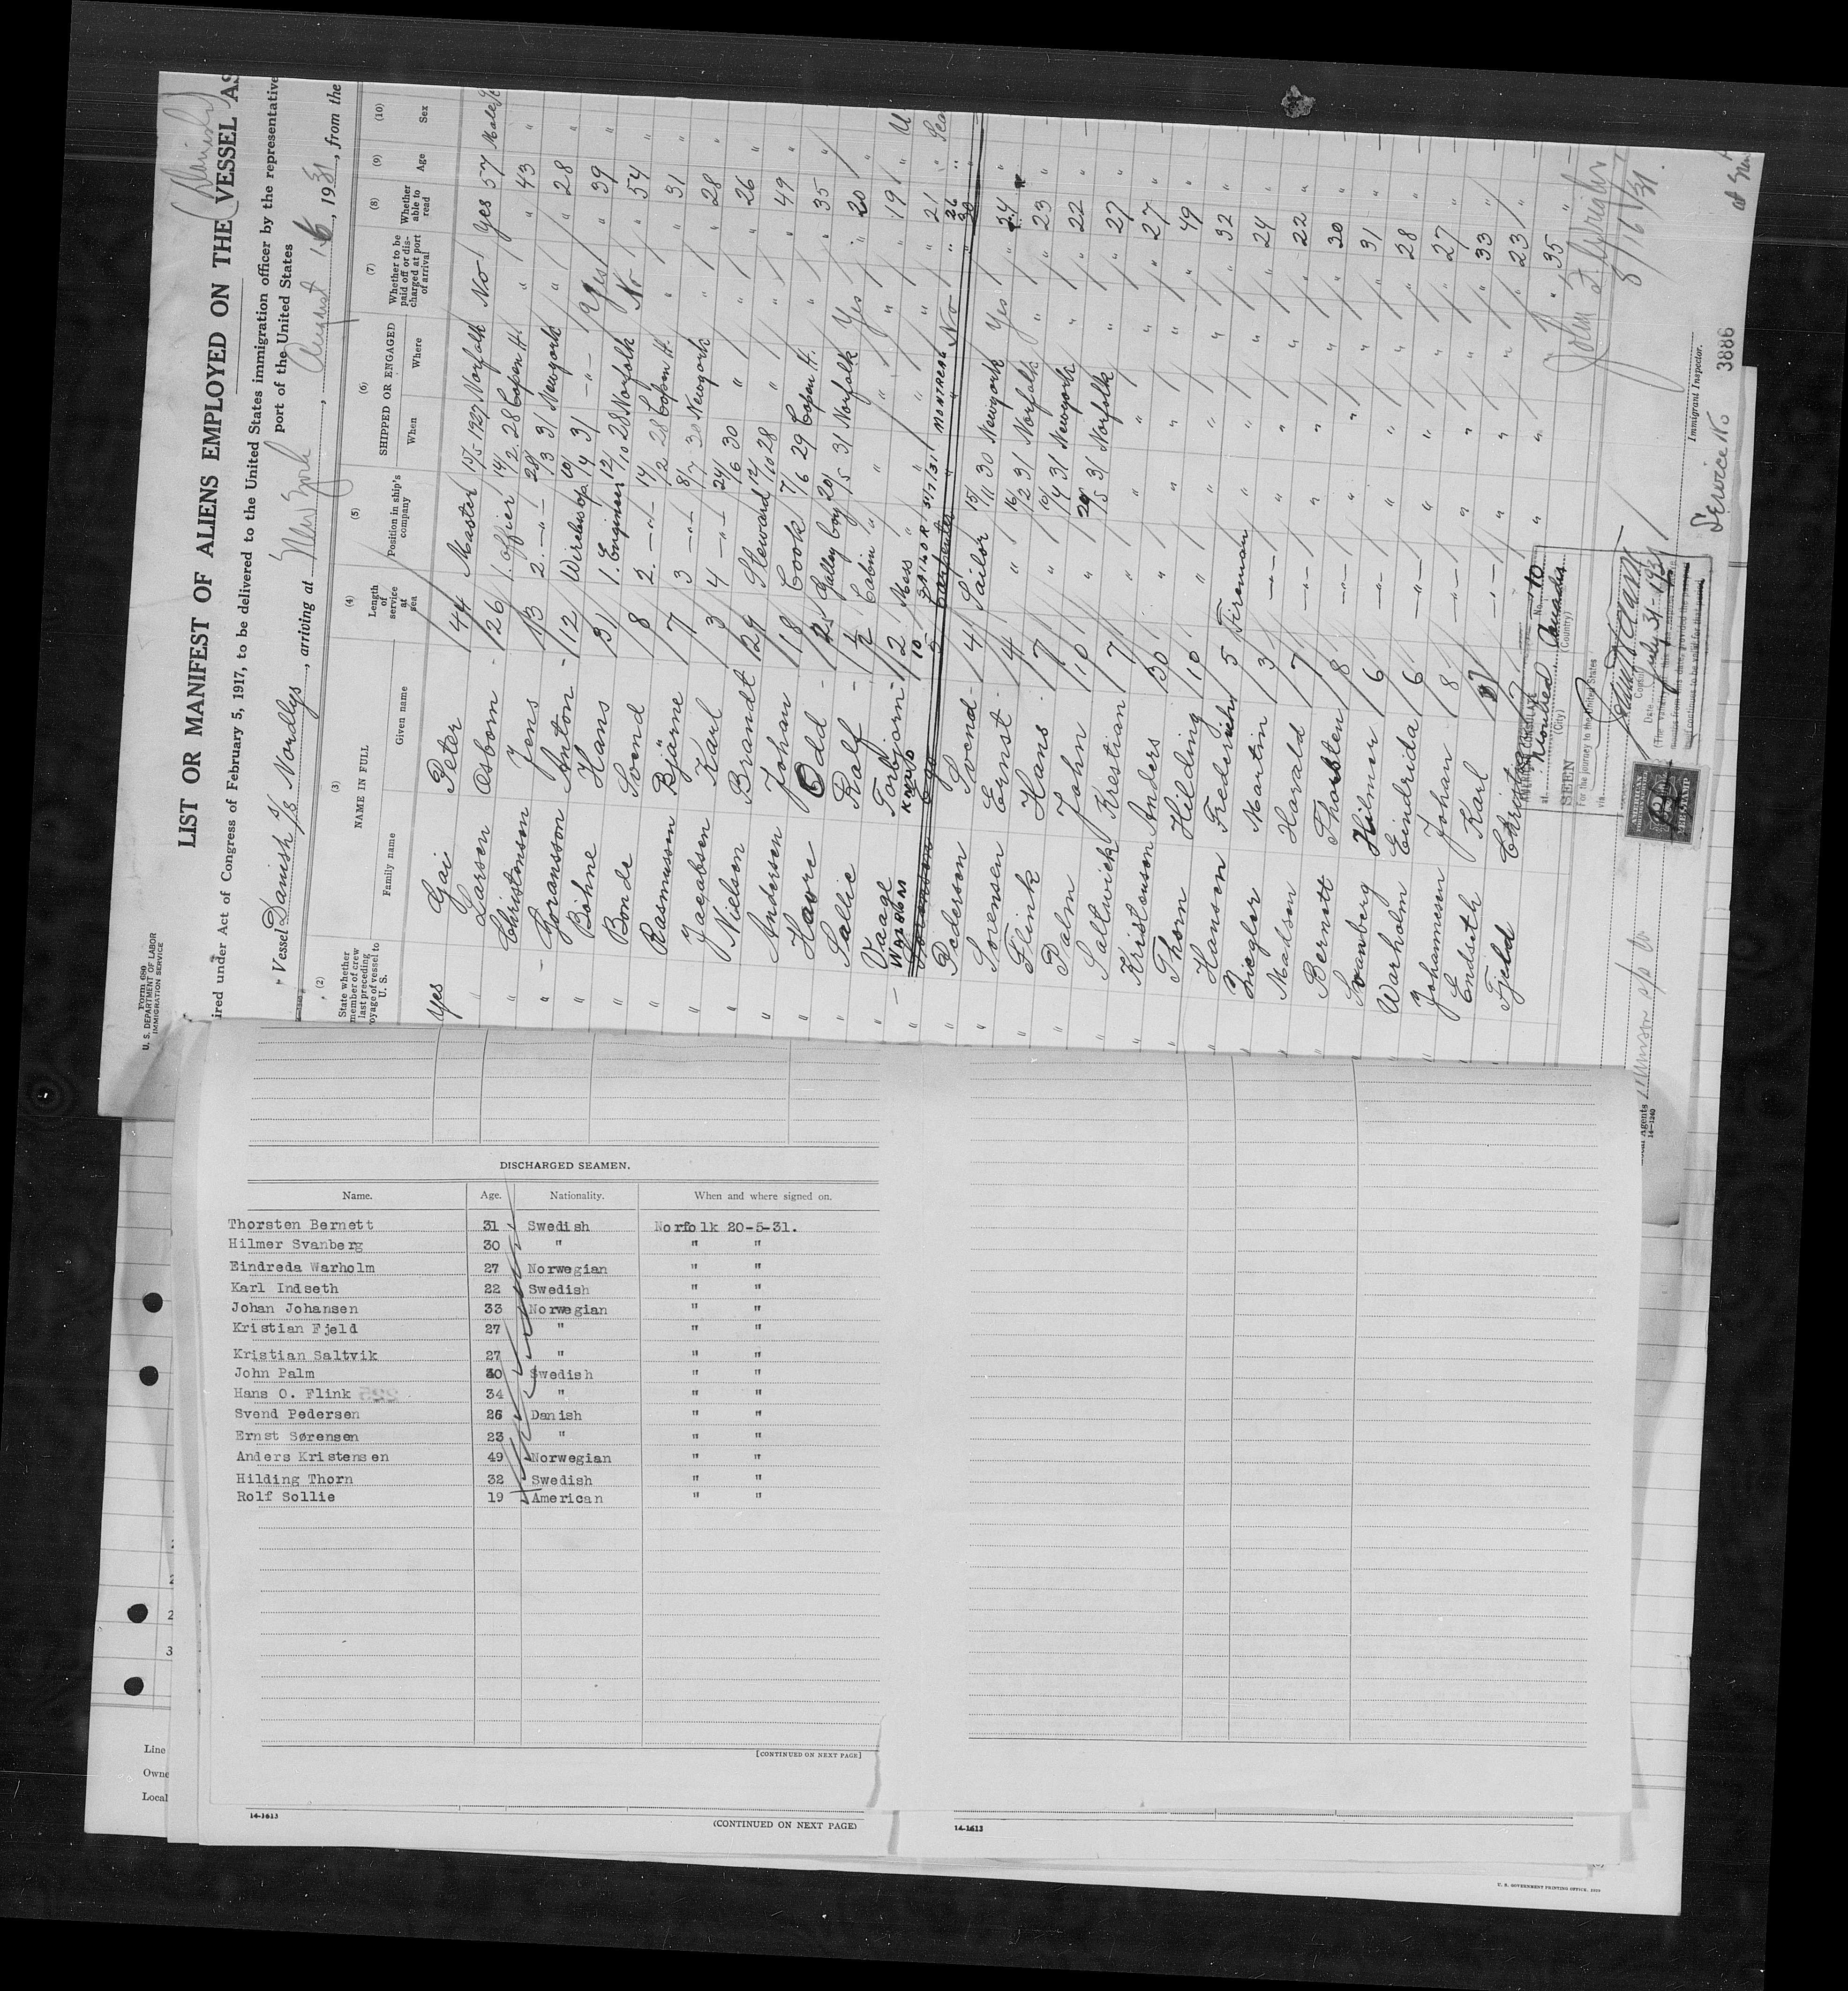 Form 680
U. S. DEPARTMENT OF LABOR
IMMIGRATION SERVICE
(Danish)
LIST OR MANIFEST OF ALIENS EMPLOYED ON THE VESSEL AS
ired under Act of Congress of February 5, 1917, to be delivered to the United States immigration officer by the representative
port of the United States
Vessel Danish s/s Nordlys, arriving at New York, August 16, 1931, from the
(2) (3) (4) (5) (6) (7) (8) (9) (10)
State whether member of crew last preceding voyage of vessel to U. S.
NAME IN FULL
Family name Given name
Length of service at sea
Position in ship's company
SHIPPED OR ENGAGED
When Where
Whether to be paid off or discharged at port of arrival
Whether able to read
Age
Sex
Yes Gai Peter 44 Master 15/5 1927 Norfolk No Yes 57 Male
" Larsen Osborn 26 1. Officer 14/2 28 Copen H. " " 43 "
" Christonson Jens 13 2. -"- 28/3 31 Newyork " " 28 "
" Goransson Anton 12 Wireless op. 10/4 31 -"- Yes " 39 "
" Böhne Hans 31 1. Engineer 12/10 28 Norfolk No " 54 "
" Bonde Svend 8 2. -"- 14/2 28 Copen H. " " 31 "
" Rasmusson Bjärne 7 3 -"- 8/7 30 Newyork " " 28 "
" Jacobsen Karl 3 4 -"- 24/6 30 " " " 26 "
" Nielsen Brandt 29 Steward 12/10 28 " " " 49 "
" Andersen Johan 18 Cook 7/6 29 Copen H. " " 35 "
" Havre Odd Galley boy 20/5 31 Norfolk Yes " 20 "
" Sallie Ralf 1/2 Cabin " " " " " 19 "
" Vaage Torbjorn 2 Mess " " " " " 21 "
10 SAILOR 31/7/31 MONTREAL No " 26 "
" Pedersen Svend 4 Sailor 15/11 30 Newyork Yes "
" Sorensen Ernst 4 " 16/2 31 Norfolk " " 23 "
" Flink Hans 7 " 10/4 31 Newyork " " 22 "
" Palm John 10 " 20/5 31 Norfolk " " 27 "
" Saltwick Krestian 7 " " " " " 27 "
" Kristenson Anders 30 " " " " " 49 "
" Thorn Hilding 10 " " " " " 32 "
" Hansen Frederick 5 Fireman " " " " 24 "
" Ziegler Martin 3 -"- " " " " 22 "
" Madsen Harald 7 -"- " " " " 30 "
" Bernett Thorsten 8 -"- " " " " 31 "
" Svanberg Hilmer 6 -"- " " " " 28 "
" Warholm Eindrida 6 -"- " " " " 27 "
" Johannesen Johan 8 -"- " " " " 33 "
" Endseth Karl -"- " " " " 23 "
" Fjeld " " " " 35 "
AMERICAN CONSULATE
at Montreal Canada
(City) (Country)
No. 10
SEEN
For the journey to the United States
via
Consul
Date July 31-1931
AMERICAN
FEE STAMP
8/16/31.
Immigrant Inspector.
Service No 3886
Local Agents Munson s/s Co
14-1240
DISCHARGED SEAMEN.
Name. Age. Nationality. When and where signed on.
Thorsten Bernett 31 Swedish Norfolk 20-5-31.
Hilmer Svanberg 30 " " "
Eindreda Warholm 27 Norwegian " "
Karl Indseth 22 Swedish " "
Johan Johansen 33 Norwegian " "
Kristian Fjeld 27 " " "
Kristian Saltvik 27 " " "
John Palm 30 Swedish " "
Hans O. Flink 34 " " "
Svend Pedersen 26 Danish " "
Ernst Sørensen 23 " " "
Anders Kristensen 49 Norwegian " "
Hilding Thorn 32 Swedish " "
Rolf Sollie 19 American " "
[CONTINUED ON NEXT PAGE]
14-1613
(CONTINUED ON NEXT PAGE)
14-1613
2
3
Line
Owne
Local
U. S. GOVERNMENT PRINTING OFFICE